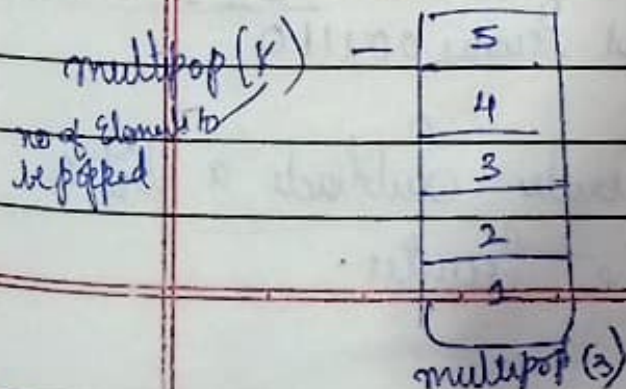 multipop(K) — 5
no of Elements to
be popped
4
3
2
1
multipop(3)